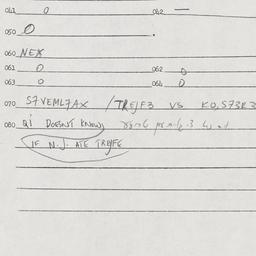 041 0 042 —
050 0
060 NEX
061 0 062 0
063 0 064 0
070 S7VEML7AX / TREJF3 VS KO,S73R3
080 QI DOESN'T KNOW
IF N.J. ATE TREJFE